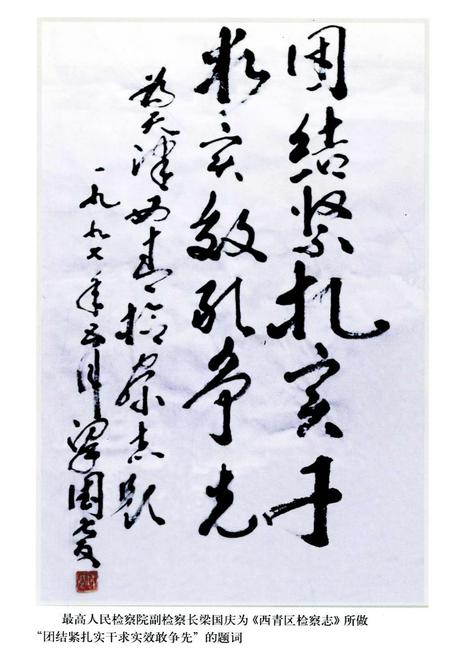 团结紧扎实干
求实效敢争先
为天津西青检察志题
一九九七年五月 梁国庆
最高人民检察院副检察长梁国庆为《西青区检察志》所做
“团结紧扎实干求实效敢争先”的题词